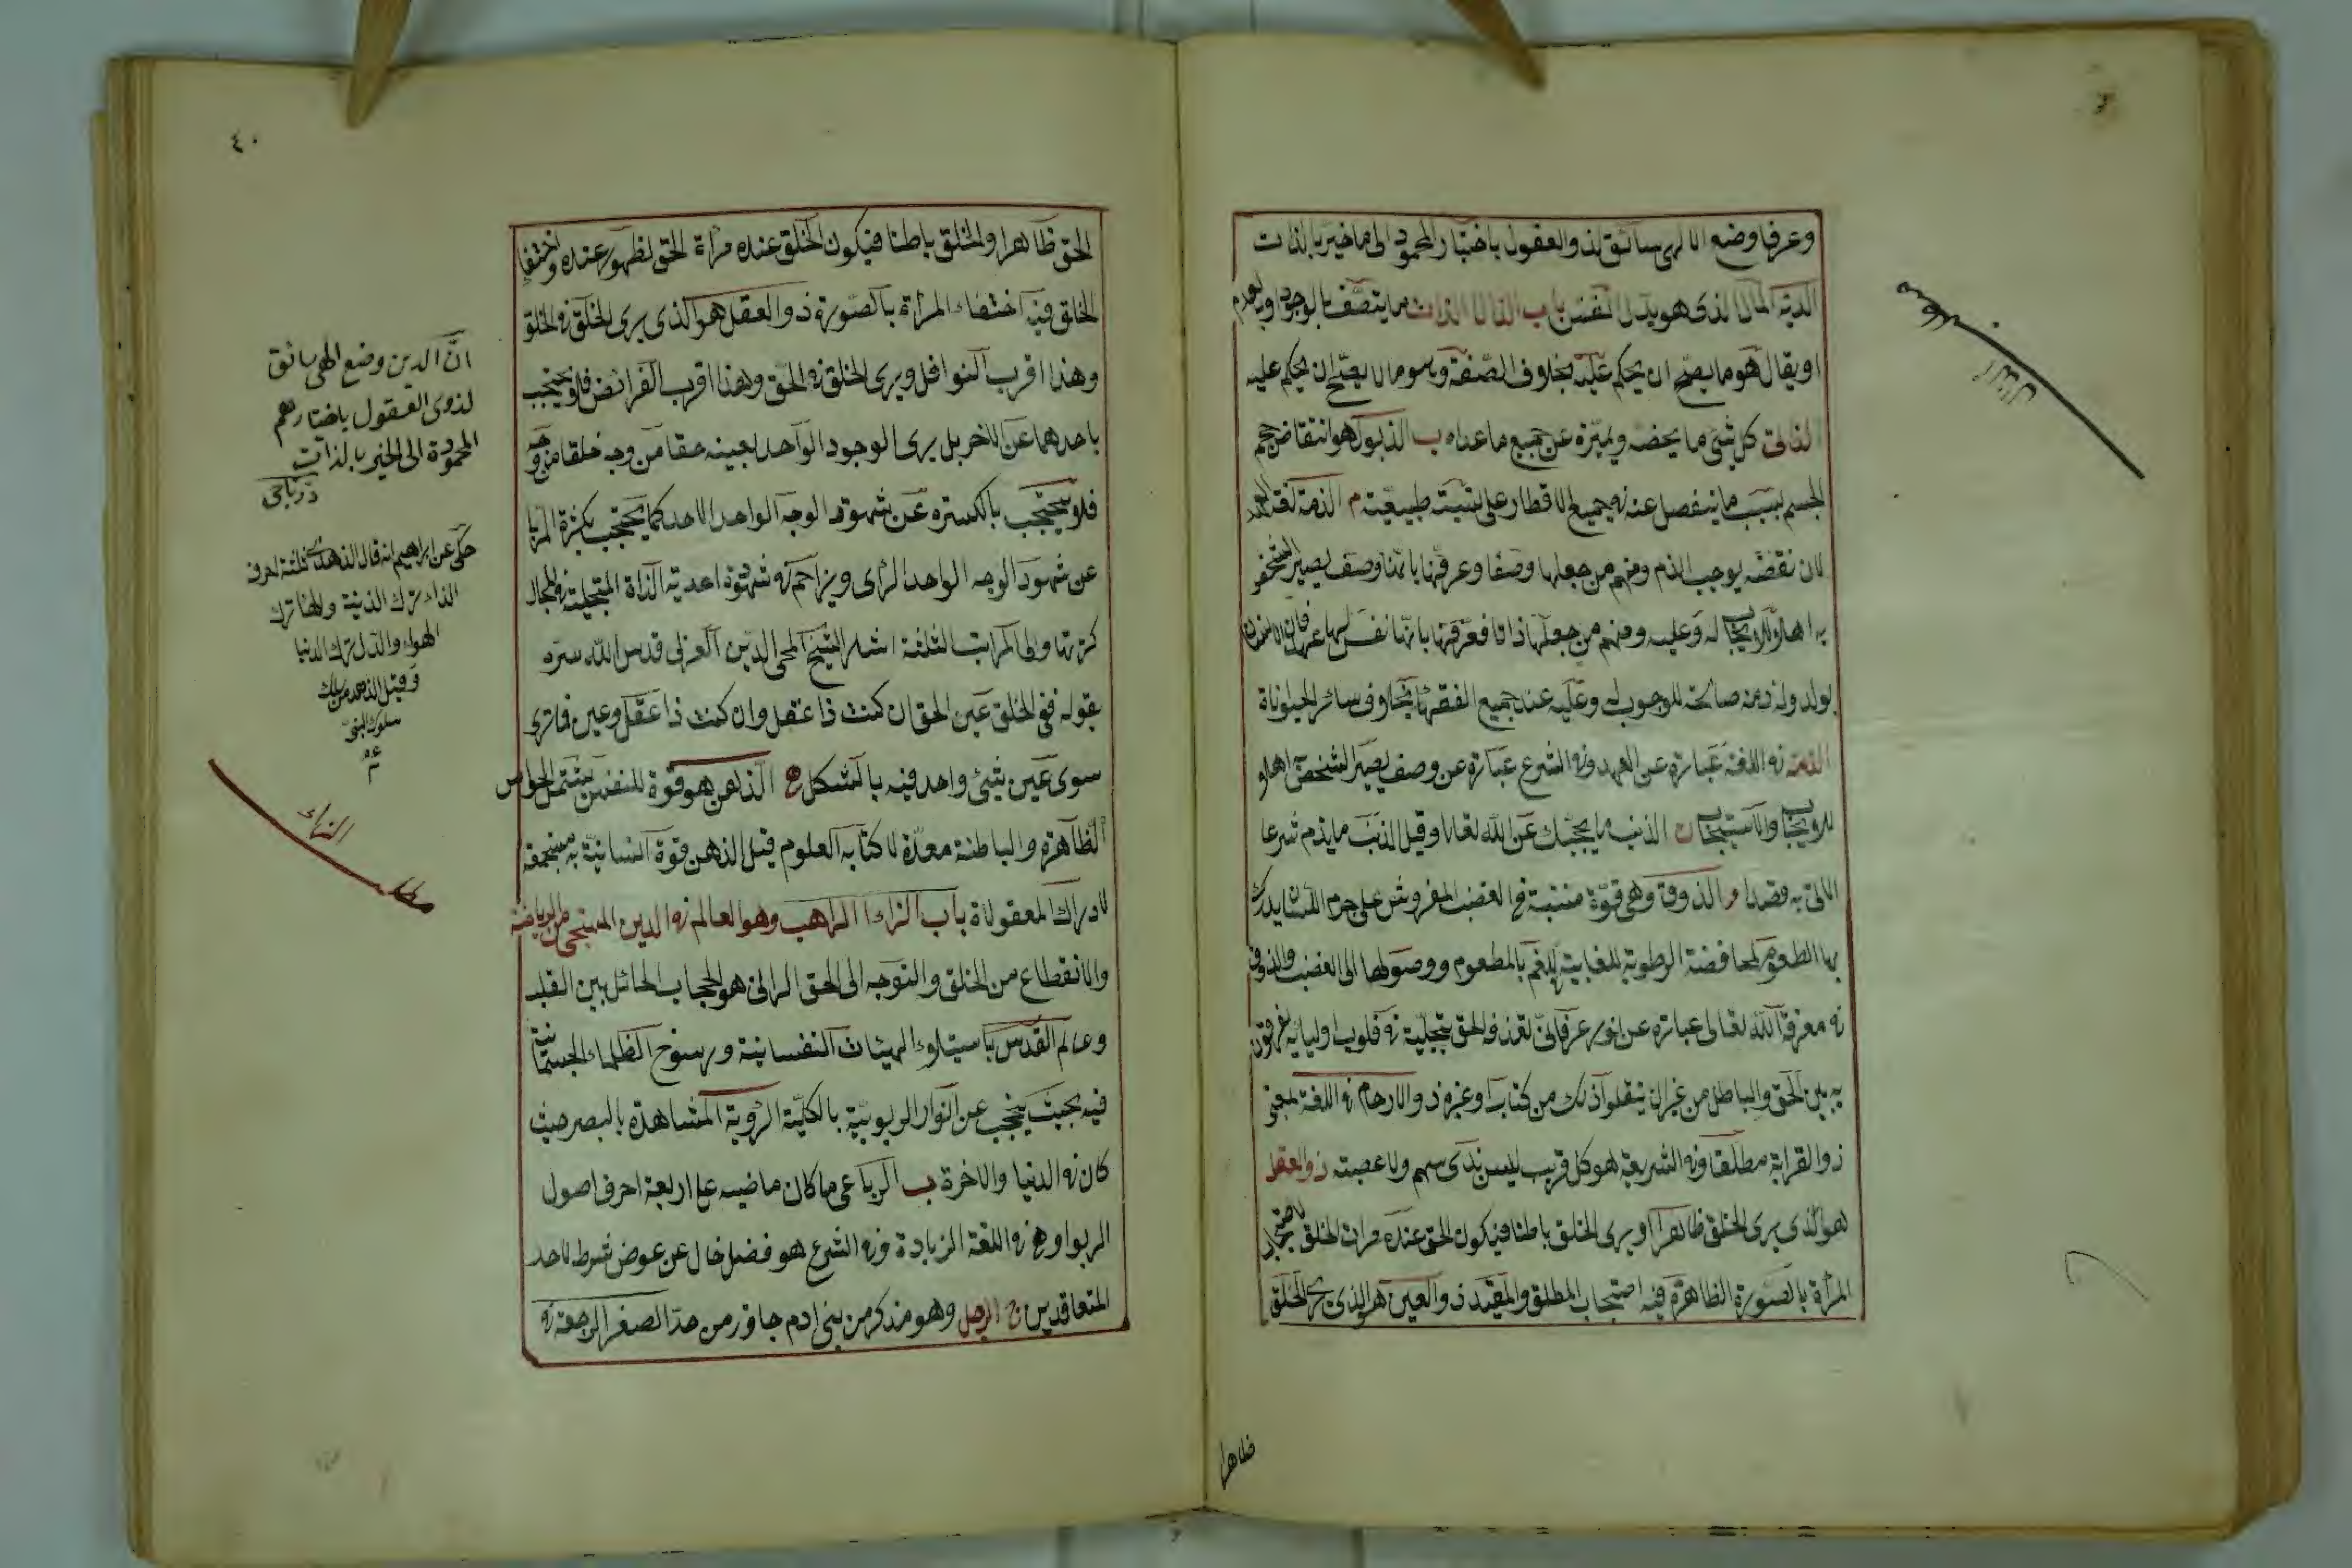 وعرفا وضع الالهى سائق لذو العقول باختيار المحمود الى ما خير بالذات
الدية المال الذى هو بدل النفس باب الذال الذات ما يتصف بالوجود وبالعدم
او يقال هو ما يصح ان يحكم عليه بخلاف الصفة وسوم ما لا يصح ان يحكم عليه
الذاتى كل شئ ما يخصه ويميزه عن جميع ما عداه ب الذبول هو انتقاص حجم
الجسم بسبب ما ينفصل عنه فى جميع الاقطار على نسبة طبيعية م الذمة لغة العهد
لان نقضه يوجب الذم ومنهم من جعلها وصفا وعرفها بانها وصف يصير الشخص
به اهلا للايجاب له وعليه ومنهم من جعلها ذاتا فعرفها بانها نفس لها عهد فان الانسان
يولد وله ذمة صالحة للوجوب له وعليه عند جميع الفقهاء بخلاف سائر الحيوانات
الذمة فى اللغة عبارة عن العهد وفى الشرع عبارة عن وصف يصير الشخص به اهلا
للايجاب والاستيجاب ن الذنب ما يحجبك عن الله تعالى وقيل الذنب ما يذم شرعا
الاتى به قصدا و الذوق وهى قوة منبثة فى العصب المفروش على جرم اللسان يدرك
بها الطعوم لمخافضة الرطوبة للعابية للفم بالمطعوم ووصولها الى العصب والذوق
فى معرفة الله تعالى عبارة عن نور عرفانى يقذفه الحق بتجليه فى قلوب اوليائه يفرقون
به بين الحق والباطل من غير ان ينقلوا ذلك من كتاب او غيره ذو الارحام فى اللغة بمعنى
ذو القرابة مطلقا وفى الشريعة هو كل قريب ليس بذى سهم ولا عصبته ذو العقل
هو الذى يرى الخلق ظاهرا ويرى الخلق باطنا فيكون الحق عنده مرات الخلق لاحتجاب
المرأة بالصورة الظاهرة فيه احتجاب المطلق والمقيد ذو العين هو الذى يرى الخلق
ظاهرا
٤٠
الحق ظاهرا والخلق باطنا فيكون الخلق عنده مرأة الحق لظهور عنده واختفاء
الخلق فيه اختفاء المرأة بالصورة ذو العقل هو الذى يرى الخلق فى الخلق
وهذا اقرب النوافل ويرى الخلق فى الحق وهذا اقرب الفرائض فلا يحتجب
باحدهما عن الاخر بل يرى الوجود الواحد بعينه حقا من وجه خلقا من وجه
فلا يحتجب بالكسره عن شهود الوجه الواحد الاحد كما يحتجب بكثرة المرايا
عن شهود الوجه الواحد الرأى ويزاحم فى شهوده احدية الذاة المتجلية فى المجال
كثرتها والى المراتب الثلثة اشار الشيخ المحى الدين العربى قدس الله سره
بقوله ففى الخلق عين الحق ان كنت ذا عقل وان كنت ذا عقل وعين فما ترى
سوى عين شئ واحد فيه بالشكل ه الذهن هو قوة للنفس يشتمل الحواس
الظاهرة والباطنة معدة لاكتابه العلوم قيل الذهن قوة انسانية به مستجمعة
لادراك المعقولاة باب الراء الراهب وهو العالم فى الدين المسيحى من الرياضة
والانقطاع من الخلق والتوجه الى الحق الرانى هو الحجاب الحائل بين القلب
وعالم القدس باستيلاء الهيئات النفسانية ورسوخ الظلماء الجسمانية
فيه بحيث يحجب عن انوار الربوبية بالكلية الرؤية المشاهدة بالبصر حيث
كان فى الدنيا والاخرة ب الرباعى ما كان ماضيه على اربعة احرف اصول
الربوا وهو فى اللغة الزيادة وفى الشرع هو فضل خال عن عوض شرط لاحد
المتعاقدين ج الرجل وهو مذكر من بنى ادم جاوز من حد الصغر الرجعة فى
ان الدين وضع الهى سائق
لذوى العقول باختيارهم
المحمودة الى الخير بالذات
حكى عن ابراهيم انه قال الذهد ثلثة احرف
الذاء ترك الذينة والهاء ترك
الهواء والدل ترك الدنيا
وقيل الذهد من سلك
سلوك النبى
الراء